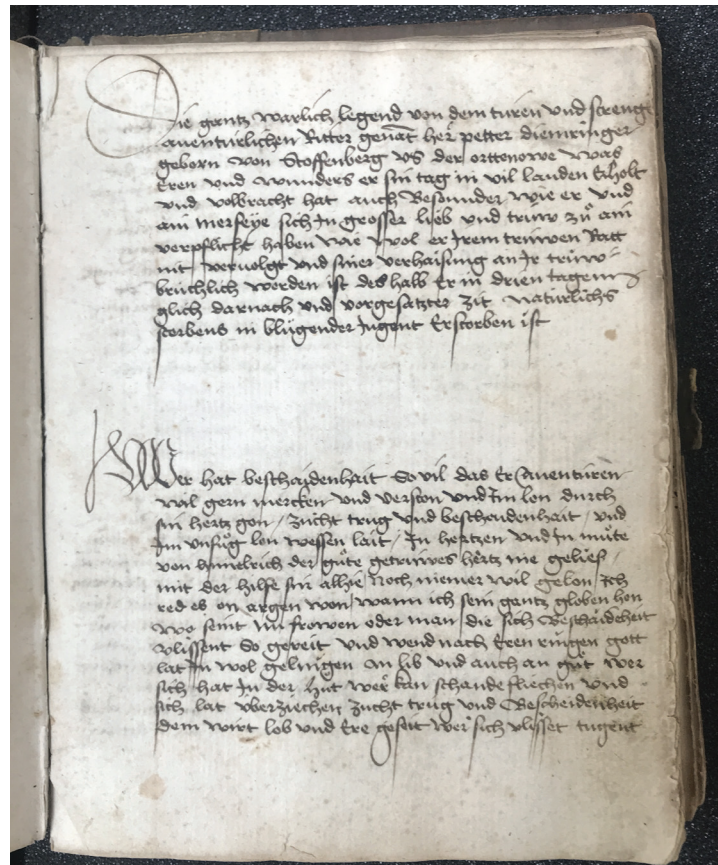 Die gantz warlich legend von dem turen vnd streng
auenturlichen Ritter genāt her petter diemringer
geborn von Stoffenberg vs der orttenowe was
Eren vnd wunders er sin tag in vil landen Erholt
vnd volbracht hat auch Besunder wie er vnd
ain merfeye sich In grosser lieb vnd truw zů ain
verpflicht haben wie wol er Irem trüwen Ratt
nit vervolgt vnd siner verhaisung an Ir trüw
brüchlich worden ist des halb er in drien tagen
glich darnach vnd vorgesatzter zit Natürlichs
sterbens in blügender Jugent Erstorben ist
Wer hat beschaidenhait So vil das Er Auentüren
wil gern mercken vnd verston vnd Im lon durch
sin hertz gon / zucht trug vnd bescheidenheit / vnd
Im vnfůg lon wessen lait / In hertzen vnd In můte
von himelrich der gůte getrüwes hertz nie gelies /
mit der hilfe sin alhie Noch niemer wil gelon / Ich
red es on argen won / wann ich sein gantz globen hon
wo seint nu frowen oder man die sich Beschaidēheit
vlissent So gereit vnd wend nach Eren ringen gott
lat In wol gelingen an lib vnd auch an gůt wer
sich hat In der hůt wer kan schande fliechen vnd
sich lat vberziechen zucht trug vnd Bescheidenheit
dem wirt lob vnd Ere geseit wer sich vlisset tugent